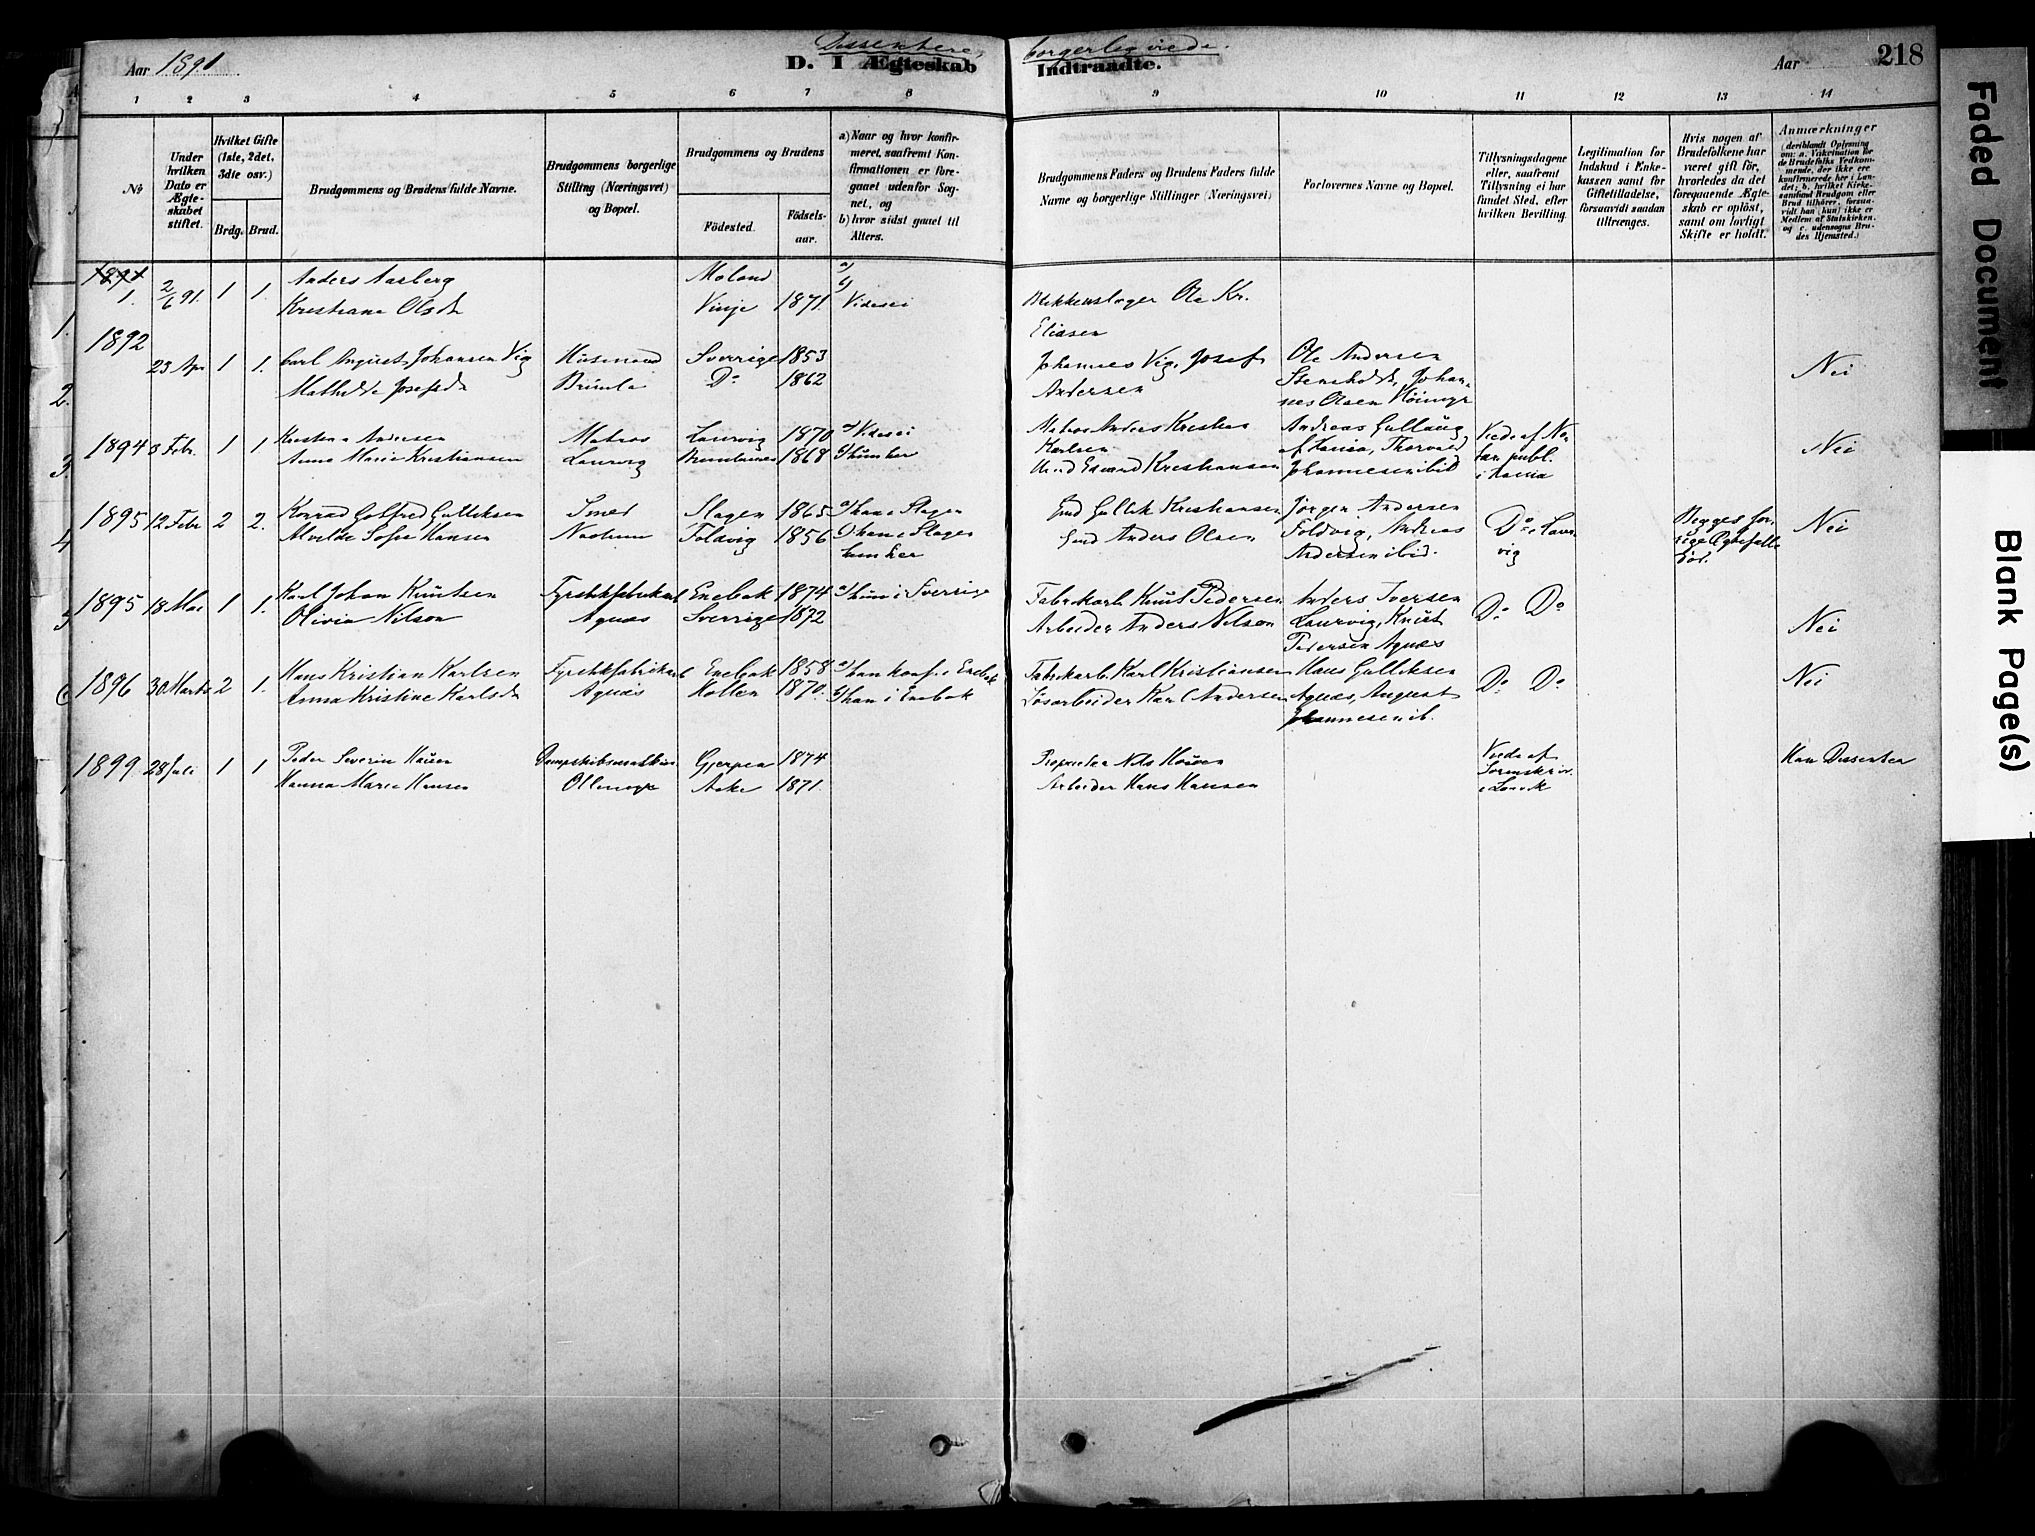 Aar 1891
Dissentere, borgerlig viede.
D. I Ægteskab Indtraadte.
Aar
218
1 2 3 4 5 6 7 8 9 10 11 12 13 14
No
Under hvilken Dato er Ægteskabet stiftet.
Hvilket Gifte (1ste, 2det, 3die osv.)
Brdg. Brud.
Brudgommens og Brudens fulde Navne.
Brudgommens borgerlige Stilling (Næringsvei) og Bopæl.
Brudgommens og Brudens
Fødested. Fødselsaar.
a) Naar og hvor konfirmeret, saafremt Konfirmationen er foregaaet udenfor Sognet, og
b) hvor sidst gaaet til Alters.
Brudgommens Faders og Brudens Faders fulde Navne og borgerlige Stillinger (Næringsvei)
Forlovernes Navne og Bopæl.
Tillysningsdagene eller, saafremt Tillysning ei har fundet Sted, efter hvilken Bevilling.
Legitimation for Indskud i Enkekassen samt for Giftetilladelse, forsaavidt saadan tiltrænges.
Hvis nogen af Brudefolkene har været gift før, hvorledes da det foregaaende Ægteskab er opløst, samt om lovligt Skifte er holdt.
Anmærkninger
(deriblandt Oplysning om: a. Vakcination for de Brudefolks Vedkommende, der ikke ere konfirmerede her i Landet; b. hvilket Kirkesamfund Brudgom eller Brud tilhører, forsaavidt han (hun) ikke er Medlem af Statskirken, og c. udensogns Brudes Hjemsted.)
1891
1. 2/6 91. 1 1. Anders Aasberg Moland a)
Kristiane Olsdt Vinje 1871. b) Videsei
Blikkenslager Ole Kr. Eliasen
1892
1. 23 Apr 1 1. Carl August Johansen Vig Husmand Sverrige 1853
Mathilde Josefsdt Brunla Do 1862
Johannes Vig, Josef Andersen
Ole Andersen Stensholdt, Johannes Olsen Höimyr
Nei
2.
1894 3 Febr. 1 1 Andersen Matros Laurvig 1870 a) Videsei
Anna Marie Kristiansen Laurvig Brunlanes 1868 hun her
Matros Anders Kristian Karlsen
Edvard Kristiansen
Andreas Gullaug, Thorvald Johannesen ibid
Viede af publ.
Nei
3.
1895 12 Febr 2 2. Konrad Gotfred Gulliksen Smed Slagen 1865 a) han i Slagen
Alvilde Sofie Hansen Foldvig 1856 b) han i Slagen hun her
Gmd Gullik Kristiansen
Gmd Anders Olsen
Jørgen Andersen Foldvig, Andreas Andersen ibid.
Do i Laurvig
Nei
4
1895 18 Mai 1 1. Karl Johan Knutsen Fyrstikfabrikarb Enebak 1874 a) hun i Sverrige
Olivia Nilson Agnæs Sverrige 1872
Fabrikarb. Knut Pedersen
Arbeider Anders Nilson
Anders Iversen Laurvig, Knut Pedersen Agnæs
Do Do
Nei
5
1896 30 Marts 2 1. Hans Kristian Karlsen Fyrstikfabrikarb Enebak 1858 a) han konf. i Enebak
Anna Kristine Karlsdt Agnæs Hollen 1870. b) han i Enebak
Fabrikarb. Karl Kristiansen
Løsarbeider Karl Andersen
Hans Gulliksen Agnæs, August Johannesen ib.
Do Do
Nei
6
1899 28 Juli 1 1 Peder Severin Gjerpen 1874
Hanna Marie Hansen 1871.
Proprietær Nils
Arbeider Hans Hansen
Viede af Sorenskriv.
Han Dissenter
Faded Document
Blank Page(s)